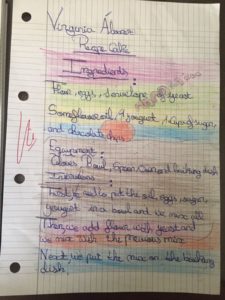 Virginia Álvarez
Recipe Cake
Ingredients:
Flour, eggs, 1 envelope of yeast
Sunflower oil, 1 yogurt, 1 cup of sugar,
and chocolate chips
Equipment:
Gloves, Bowl, Spoon, Oven and baking dish
First, we add to put the oil, eggs, sugar,
yougurt in a bowl and we mix all
Then we add flour with yeast and
we mix with the previous mix
Next we put the mix on the baking
dish;